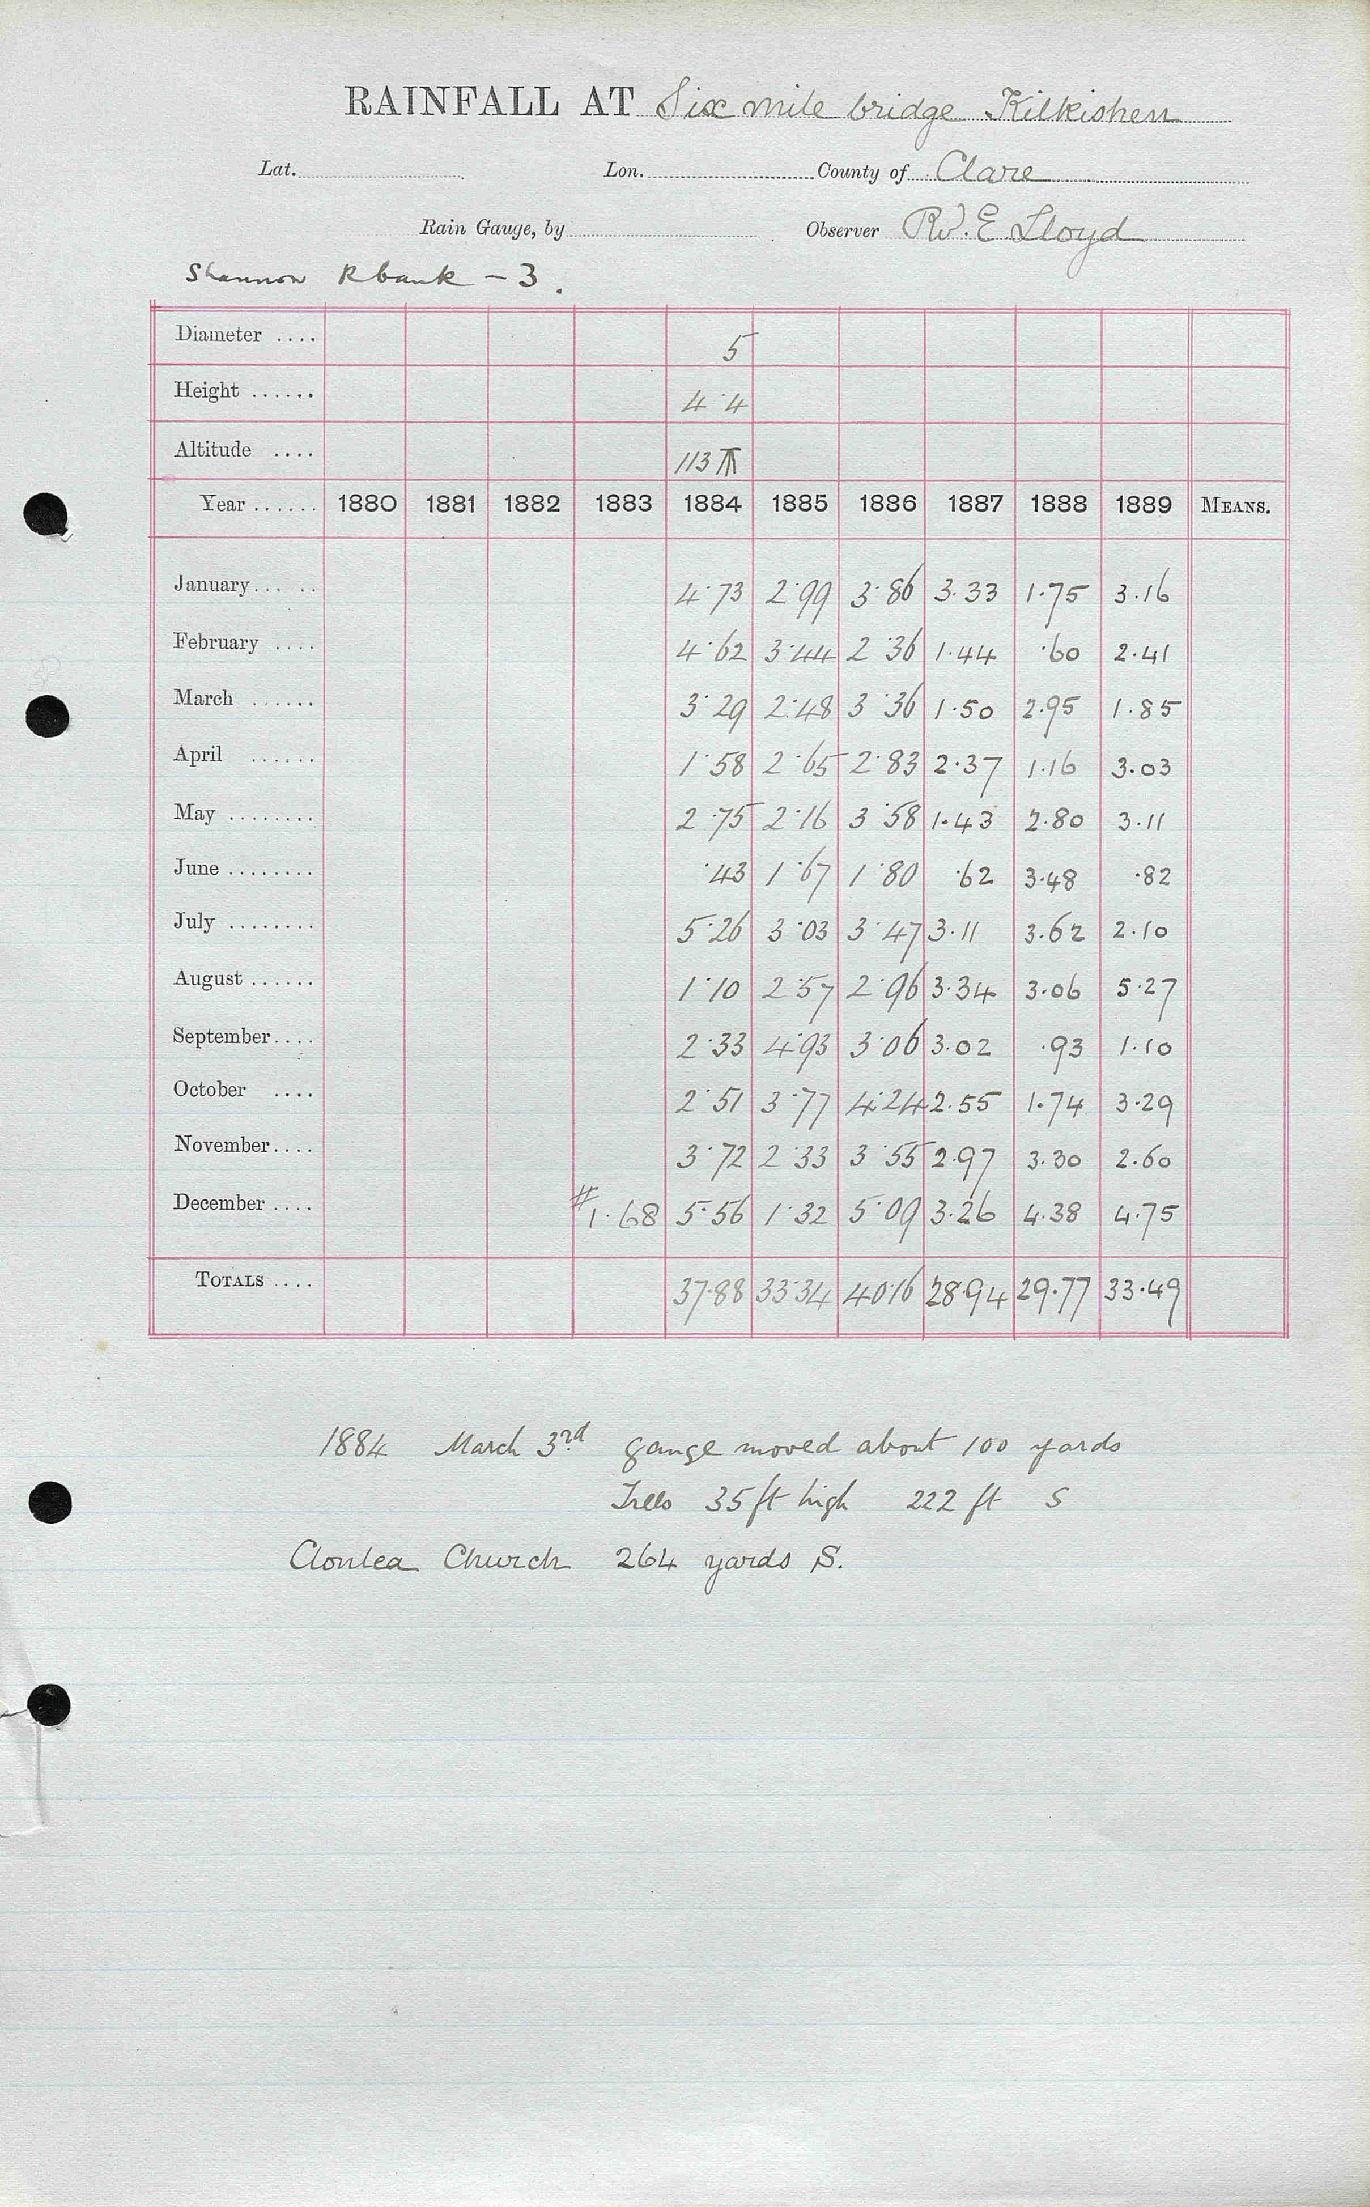 RAINFALL AT Six mile bridge Kilkishen
Lat. Lon. County of Clare
Rain Gauge, by Observer Rv. E Lloyd
Shannon R bank - 3.
Diameter .... 5
Height ...... 4·4
Altitude .... 113
Year ...... 1880 1881 1882 1883 1884 1885 1886 1887 1888 1889 MEANS.
January ... .. 4·73 2·99 3·86 3·33 1·75 3·16
February .... 4·62 3·44 2·36 1·44 ·60 2·41
March ...... 3·29 2·48 3·36 1·50 2·95 1·85
April ...... 1·58 2·65 2·83 2·37 1·16 3·03
May ........ 2·75 2·16 3·58 1·43 2·80 3·11
June ........ ·43 1·67 1·80 ·62 3·48 ·82
July ........ 5·26 3·03 3·47 3·11 3·62 2·10
August ...... 1·10 2·57 2·96 3·34 3·06 5·27
September .... 2·33 4·93 3·06 3·02 ·93 1·10
October .... 2·51 3·77 4·24 2·55 1·74 3·29
November .... 3·72 2·33 3·55 2·97 3·30 2·60
December .... #1·68 5·56 1·32 5·09 3·26 4·38 4·75
TOTALS .... 37·88 33·34 40·16 28·94 29·77 33·49
1884 March 3rd gauge moved about 100 yards
Trees 35 ft high 222 ft S
Clonlea Church 264 yards S.